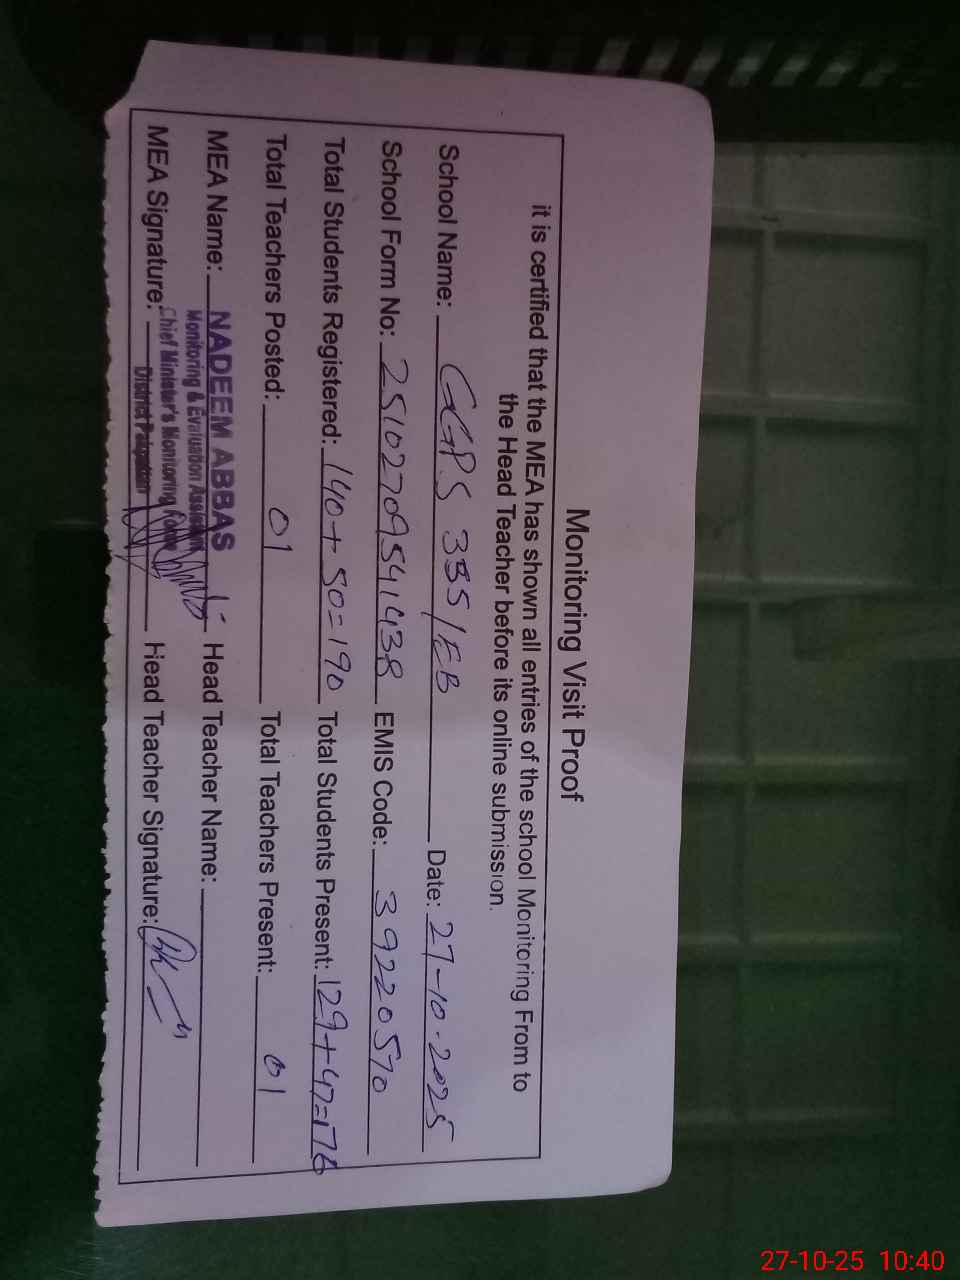 Monitoring Visit Proof
it is certified that the MEA has shown all entries of the school Monitoring From to
the Head Teacher before its online submission.
School Name: GGPS 335/EB Date: 27-10-2025
School Form No: 25102709541438 EMIS Code: 39220570
Total Students Registered: 140+50=190 Total Students Present: 129+47=176
Total Teachers Posted: 01 Total Teachers Present: 01
MEA Name: NADEEM ABBAS Head Teacher Name:
Monitoring & Evaluation Assistant
Chief Minister's Monitoring Force
MEA Signature: District Pakpattan Head Teacher Signature:
27-10-25 10:40